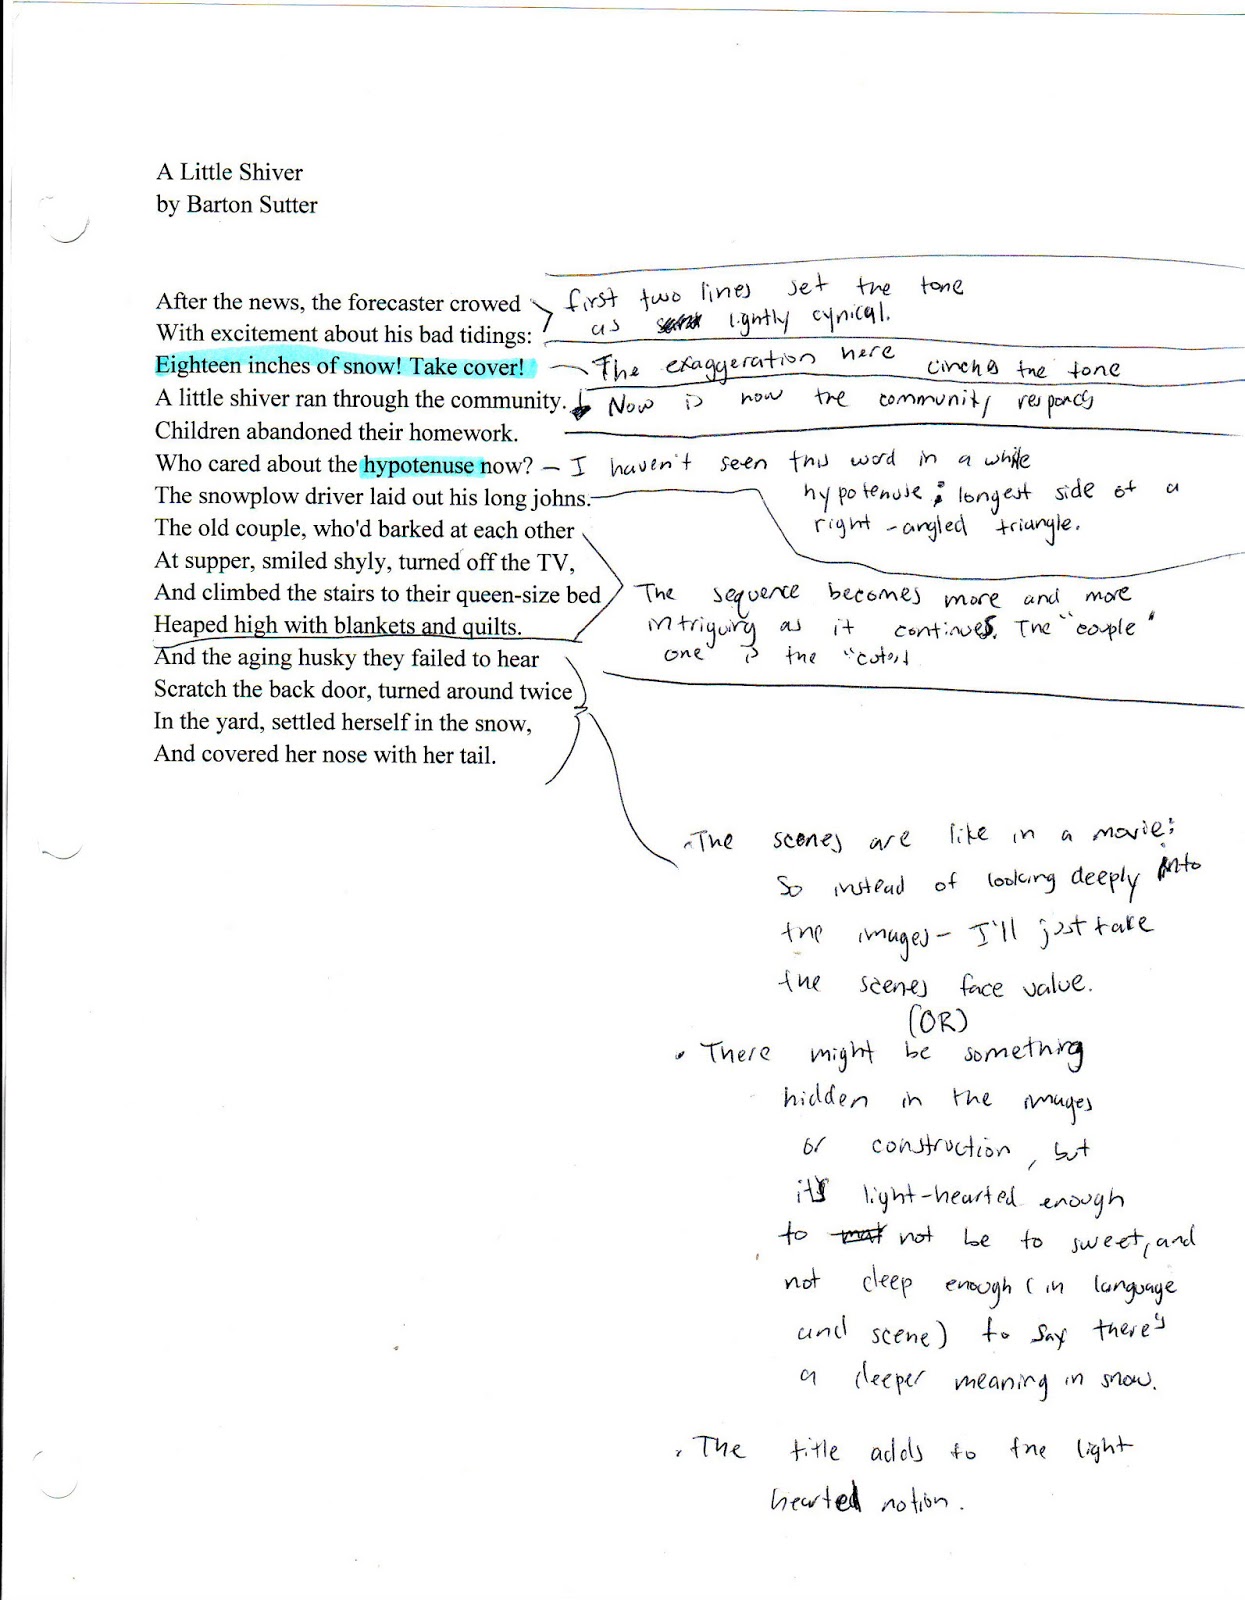 A Little Shiver
by Barton Sutter
After the news, the forecaster crowed
With excitement about his bad tidings:
Eighteen inches of snow! Take cover!
A little shiver ran through the community.
Children abandoned their homework.
Who cared about the hypotenuse now?
The snowplow driver laid out his long johns.
The old couple, who'd barked at each other
At supper, smiled shyly, turned off the TV,
And climbed the stairs to their queen-size bed
Heaped high with blankets and quilts.
And the aging husky they failed to hear
Scratch the back door, turned around twice
In the yard, settled herself in the snow,
And covered her nose with her tail.
first two lines set the tone
as lightly cynical.
The exaggeration here cinches the tone
Now is how the community responds
- I haven't seen this word in a while
hypotenuse: longest side of a
right-angled triangle.
The sequence becomes more and more
intriguing as it continues. The "couple"
one is the "cutest
The scenes are like in a movie:
So instead of looking deeply into
the images - I'll just take
the scenes face value.
(OR)
• There might be something
hidden in the images
or construction, but
its light-hearted enough
to not be to sweet, and
not deep enough (in language
and scene) to say there's
a deeper meaning in snow.
• The title adds to the light
hearted notion.